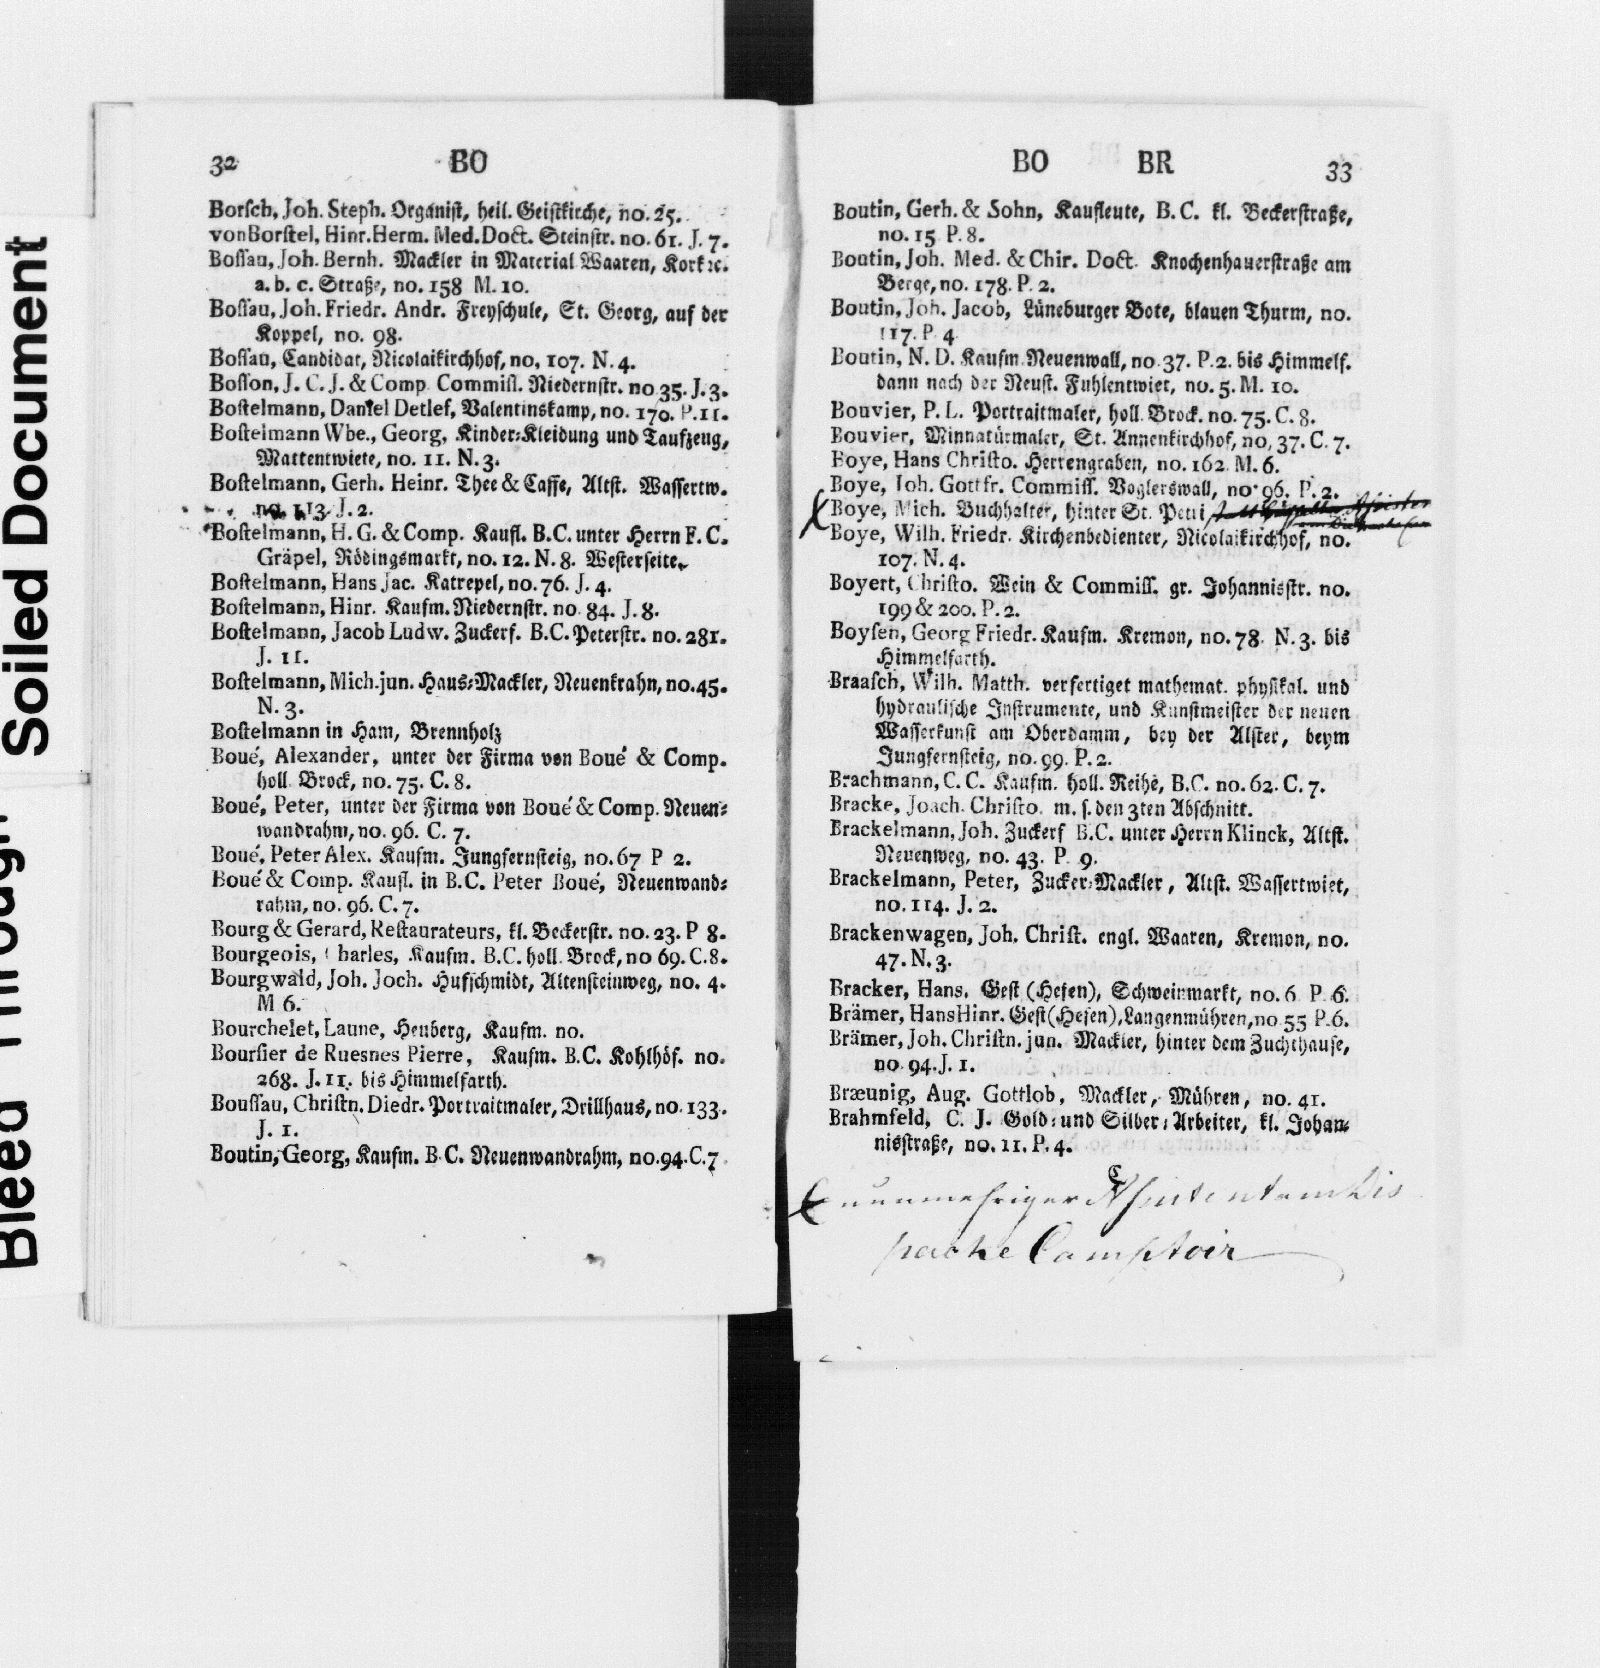 Soiled Document
Bleed Through
32 BO
Borsch, Joh. Steph. Organist, heil. Geistkirche, no. 25.
von Borstel, Hinr. Herm. Med. Doct. Steinstr. no. 61. J. 7.
Bossau, Joh. Bernh. Mackler in Material Waaren, Kork ꝛc.
a. b. c. Straße, no. 158 M. 10.
Bossau, Joh. Friedr. Andr. Freyschule, St. Georg, auf der
Koppel, no. 98.
Bossau, Candidat, Nicolaikirchhof, no, 107. N. 4.
Bosson, J. C. J. & Comp. Commiss. Niedernstr. no 35. J. 3.
Bostelmann, Daniel Detlef, Valentinskamp, no. 170. P. 11.
Bostelmann Wbe., Georg, Kinder-Kleidung und Taufzeug,
Mattentwiete, no. 11. N. 3.
Bostelmann, Gerh. Heinr. Thee & Caffe, Altst. Wassertw.
no. 113 J. 2.
Bostelmann, H. G. & Comp. Kaufl. B. C. unter Herrn F. C.
Gräpel, Rödingsmarkt, no. 12. N. 8. Westerseite.
Bostelmann, Hans Jac. Katrepel, no. 76. J. 4.
Bostelmann, Hinr. Kaufm. Niedernstr. no. 84. J. 8.
Bostelmann, Jacob Ludw. Zuckerf. B. C. Peterstr. no. 281.
J. 11.
Bostelmann, Mich. jun. Haus-Mackler, Neuenkrahn, no. 45.
N. 3.
Bostelmann in Ham, Brennholz
Boué, Alexander, unter der Firma von Boué & Comp.
holl. Brock, no. 75. C. 8.
Boué, Peter, unter der Firma von Boué & Comp. Neuen-
wandrahm, no. 96. C. 7.
Boué, Peter Alex. Kaufm. Jungfernsteig, no. 67 P 2.
Boué & Comp. Kaufl. in B. C. Peter Boué, Neuenwand-
rahm, no. 96. C. 7.
Bourg & Gerard, Restaurateurs, kl. Beckerstr. no. 23. P 8.
Bourgeois, harles, Kaufm. B. C. holl. Brock, no 69. C. 8.
Bourgwald, Joh. Joch. Hufschmidt, Altensteinweg, no. 4.
M 6.
Bourchelet, Laune, Heuberg, Kaufm. no.
Boursier de Ruesnes Pierre, Kaufm. B. C. Kohlhöf. no.
268. J. 11. bis Himmelfarth.
Boussau, Christn. Diedr. Portraitmaler, Drillhaus, no. 133.
J. 1.
Boutin, Georg, Kaufm. B. C. Neuenwandrahm, no. 94. C. 7
BO BR 33
Boutin, Gerh. & Sohn, Kaufleute, B. C. kl. Beckerstraße,
no. 15 P. 8.
Boutin, Joh. Med. & Chir. Doct. Knochenhauerstraße am
Berge, no. 178. P. 2.
Boutin, Joh. Jacob, Lüneburger Bote, blauen Thurm, no.
117. P. 4
Boutin, N. D. Kaufm. Neuenwall, no. 37. P. 2. bis Himmelf.
dann nach der Neust. Fuhlentwiet, no. 5. M. 10.
Bouvier, P. L. Portraitmaler, holl. Brock. no. 75. C. 8.
Bouvier, Minnatürmaler, St. Annenkirchhof, no, 37. C. 7.
Boye, Hans Christo. Herrengraben, no. 162. M. 6.
Boye, Joh. Gottfr. Commiss. Voglerswall, no. 96. P. 2.
Boye, Mich. Buchhalter, hinter St. Petri
Boye, Wilh. Friedr. Kirchenbedienter, Nicolaikirchhof, no.
107. N. 4.
Boyert, Christo. Wein & Commiss. gr. Johannisstr. no.
199 & 200. P. 2.
Boysen, Georg Friedr. Kaufm. Kremon, no. 78. N. 3. bis
Himmelfarth.
Braasch, Wilh. Matth. verfertiget mathemat. physikal. und
hydraulische Instrumente, und Kunstmeister der neuen
Wasserkunst am Oberdamm, bey der Alster, beym
Jungfernsteig, no. 99. P. 2.
Brachmann, C. C. Kaufm. holl. Reihe, B. C. no. 62. C. 7.
Bracke, Joach. Christo. m. s. den 3ten Abschnitt.
Brackelmann, Joh. Zuckerf B. C. unter Herrn Klinck, Altst.
Neuenweg, no. 43. P. 9.
Brackelmann, Peter, Zucker-Mackler, Altst. Wassertwiet,
no. 114. J. 2.
Brackenwagen, Joh. Christ. engl. Waaren, Kremon, no.
47. N. 3.
Bracker, Hans, Gest (Hefen), Schweinmarkt, no. 6 P. 6.
Brämer, Hans Hinr. Gest (Hefen), Langenmühren, no 55 P. 6.
Brämer, Joh. Christn. jun. Mackler, hinter dem Zuchthause,
no. 94. J. 1.
Bræunig, Aug. Gottlob, Mackler, Mühren, no. 41.
Brahmfeld, C. J. Gold- und Silber-Arbeiter, kl. Johan-
nisstraße, no. 11. P. 4.
nunmehriger Assistent am Dis
pache Comptoir